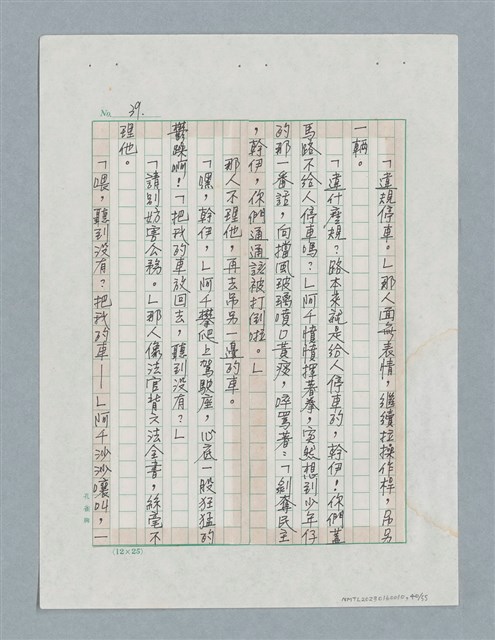 No. 39.
「違規停車。」那人面無表情，繼續拉操作桿，吊另
一輛。
「違什麼規？路本來就是給人停車的，幹伊！你們蓋
馬路不給人停車嗎？」阿千憤憤揮著拳，突然想到少年仔
的那一番話，向擋風玻璃噴口黃痰，啐罵著：「剝奪民主
，幹伊，你們通通該被打倒啦。」
那人不理他，再去吊另一邊的車。
「嘿，幹伊，」阿千攀爬上駕駛座，心底一股狂猛的
鬱躁啊！「把我的車放回去，聽到沒有？」
「請別妨害公務。」那人像法官背六法全書，絲毫不
理他。
「喂，聽到沒有？把我的車——」阿千沙沙嚷叫，一
(12×25)